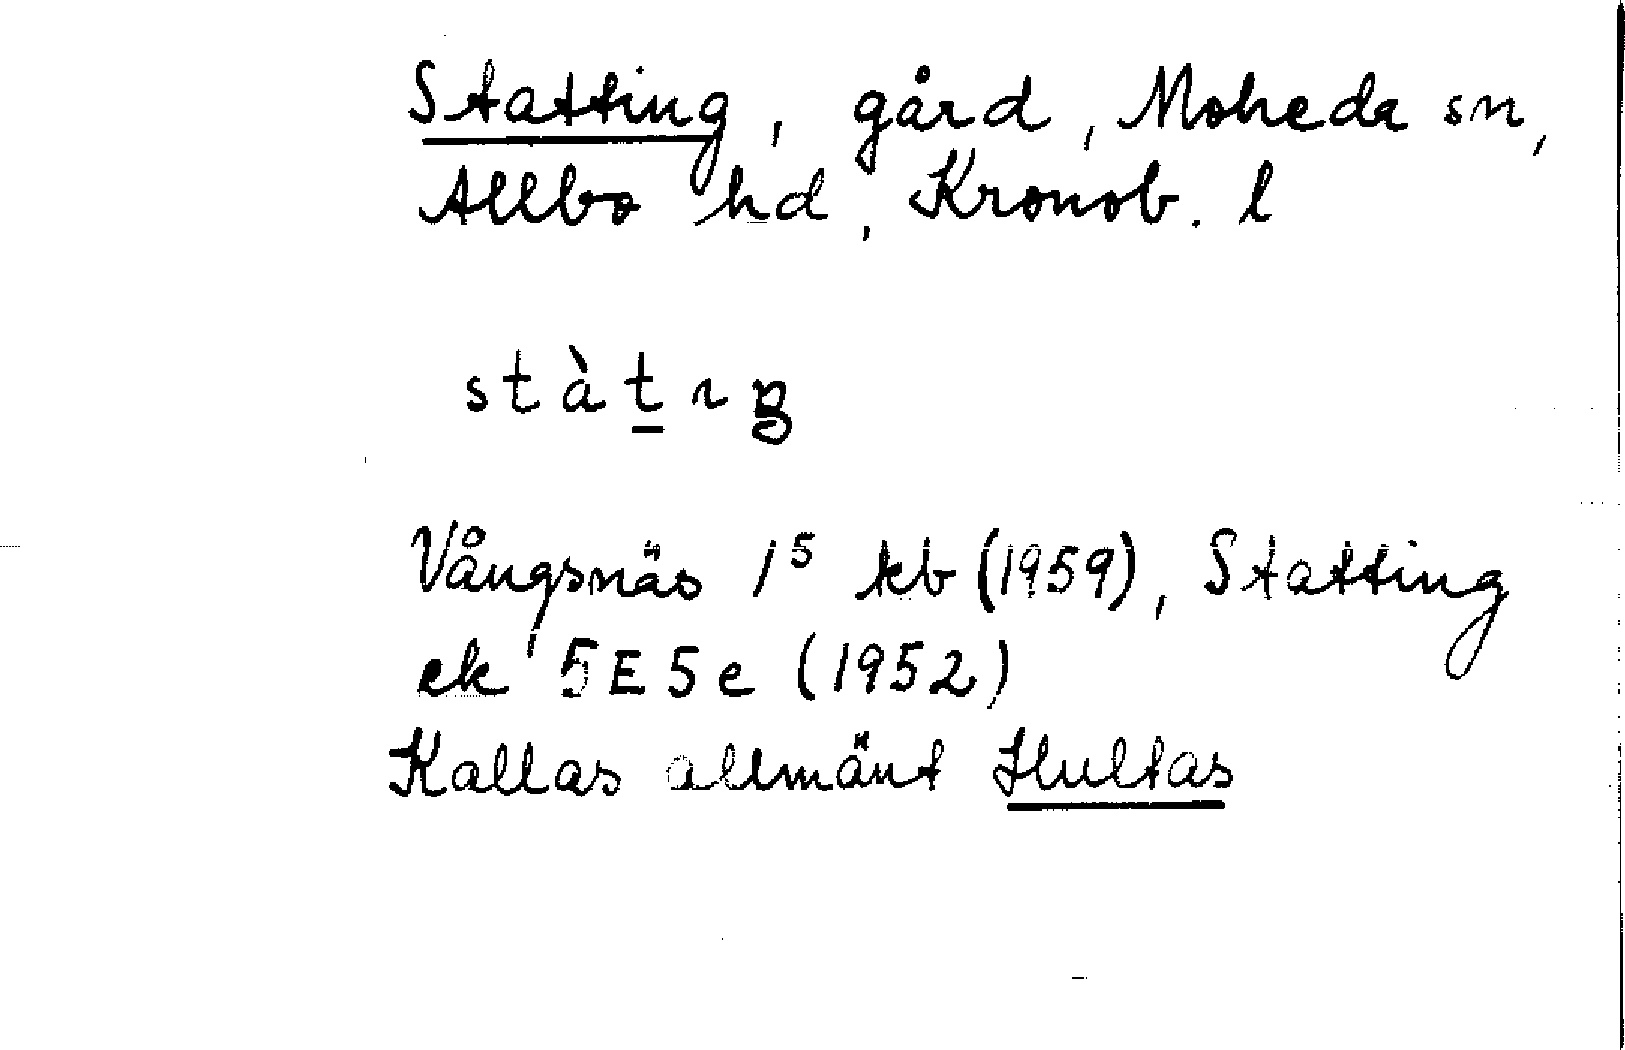 Statting, gård, Moheda sn,
Allbo hd, Kronob. l
stàt̲ıŋ
Vångsnäs 1⁵ kb (1959), Statting
ek 5E5e (1952)
Kallas allmänt Hultas